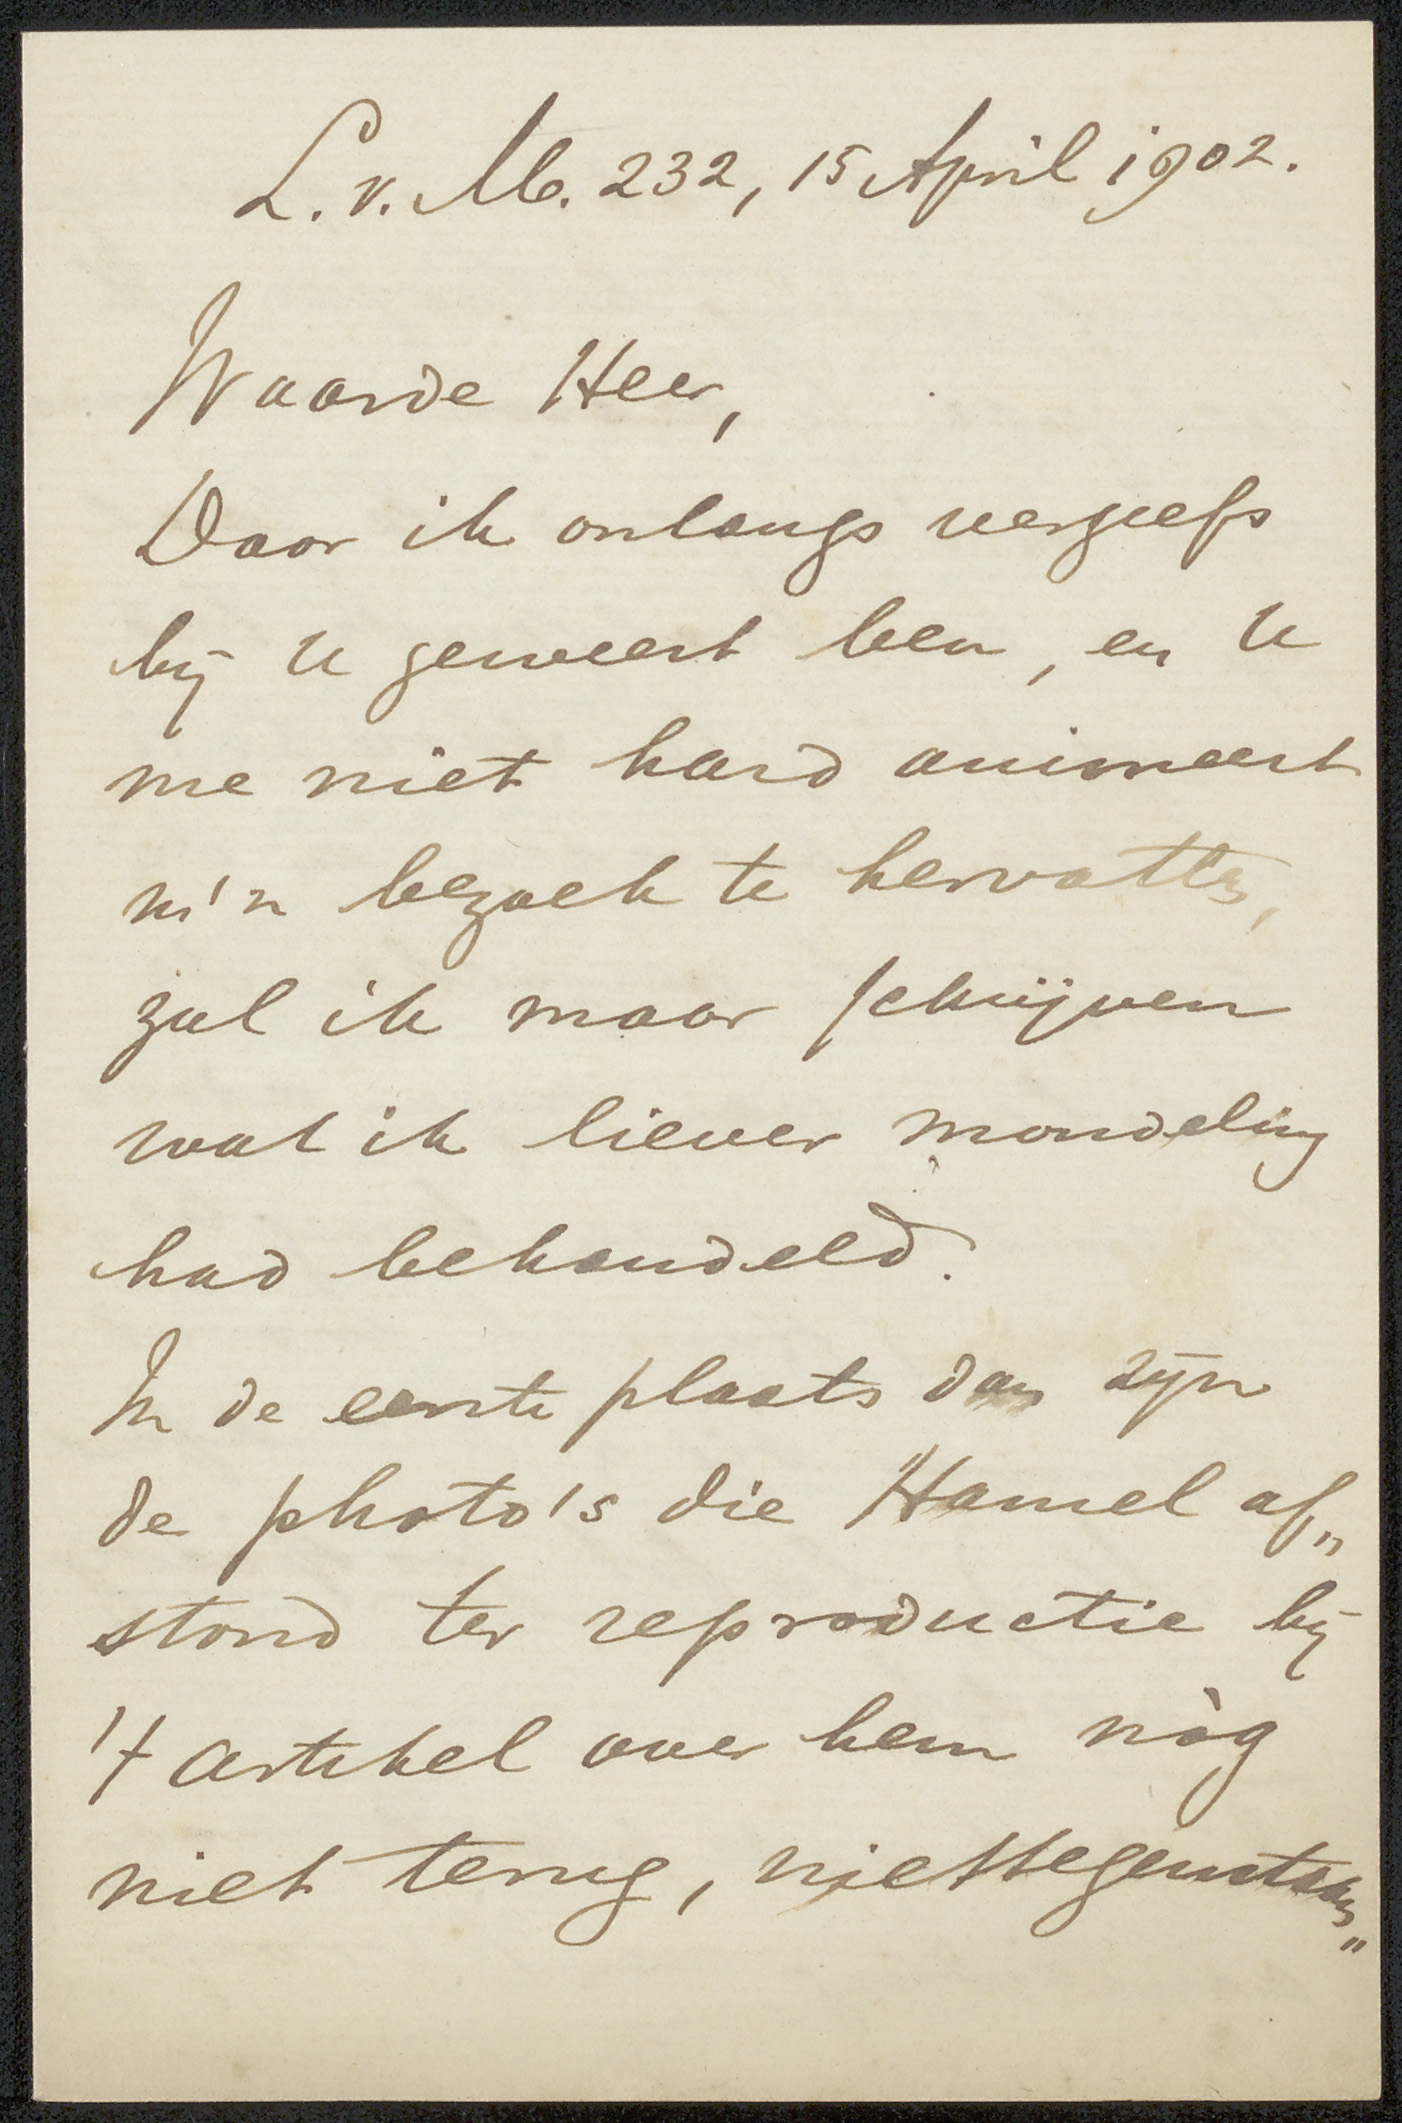 L. v. M. 232, 15 April 1902.
Waarde Heer,
Daar ik onlangs vergeefs
bij U geweest ben, en U
me niet hard animeert
m'n bezoek te hervatten,
zal ik maar schrijven
wat ik liever mondeling
had behandeld.
In de eerste plaats dan zijn
de photo's die Hamel af„
stond ter reproductie bij
't artikel over hem nòg
niet terug, niettegenstaan„